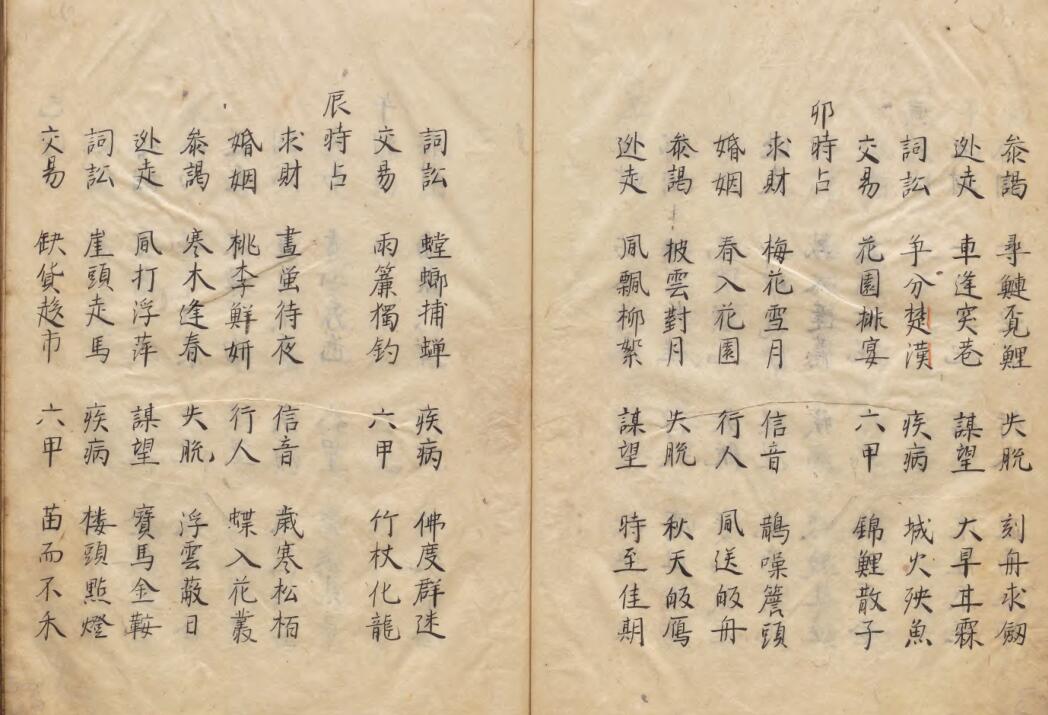 叅謁 尋鰱覓鯉 失脫 刻舟求劔
迯走 車逢窄巷 謀望 大旱甘霖
詞訟 爭分楚漢 疾病 城火殃魚
交易 花園排宴 六甲 錦鯉散子
卯時占
求財 梅花雪月 信音 鵲噪簷頭
婚姻 春入花園 行人 風送皈舟
叅謁 披雲對月 失脫 秋天皈鴈
迯走 風飄柳絮 謀望 時至佳期
詞訟 螳螂捕蟬 疾病 佛度群迷
交易 雨簾獨釣 六甲 竹杖化龍
辰時占
求財 晝螢待夜 信音 歲寒松栢
婚姻 桃李鮮妍 行人 蝶入花叢
叅謁 寒木逢春 失脫 浮雲蔽日
迯走 風打浮萍 謀望 寶馬金鞍
詞訟 崖頭走馬 疾病 楼頭點燈
交易 缺貨趂市 六甲 苗而不禾